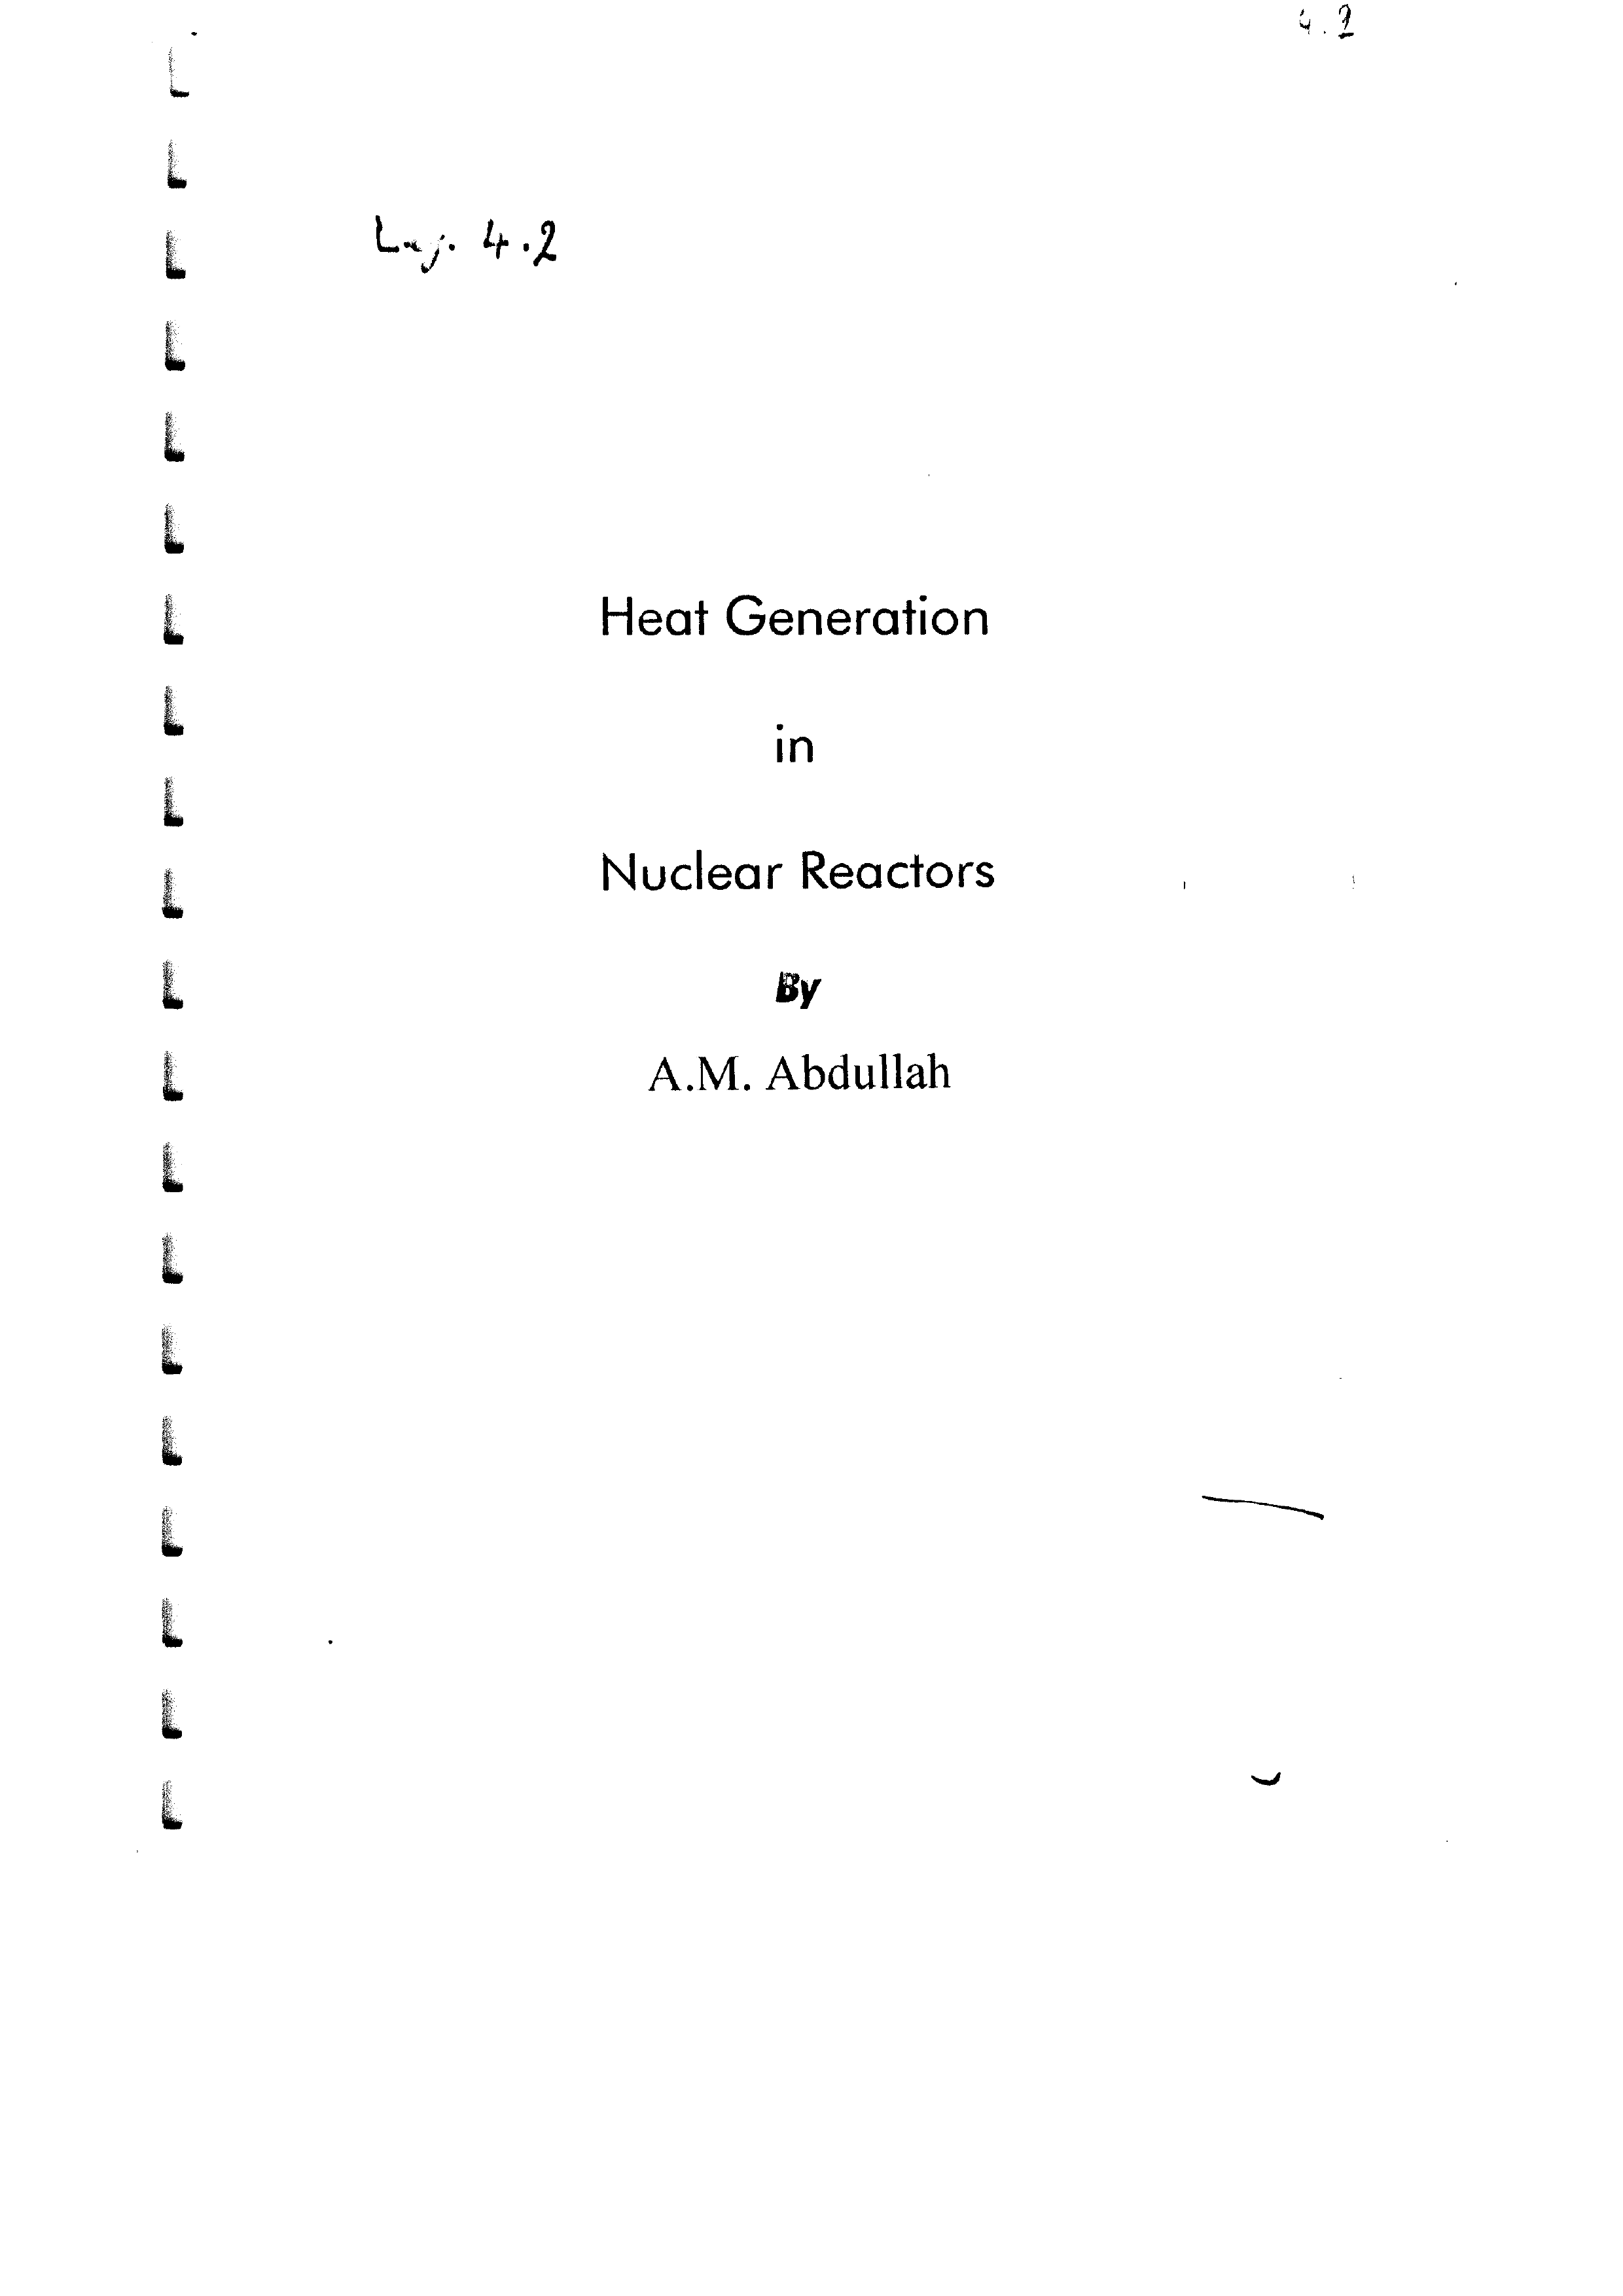 4.2
4.2
Heat Generation
in
Nuclear Reactors
By
A.M. Abdullah